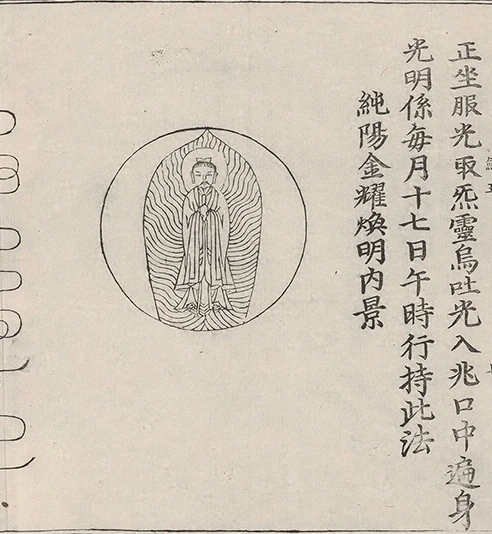 正坐服光取炁靈烏吐光入兆口中遍身
光明係每月十七日午時行持此法
純陽金耀煥明内景